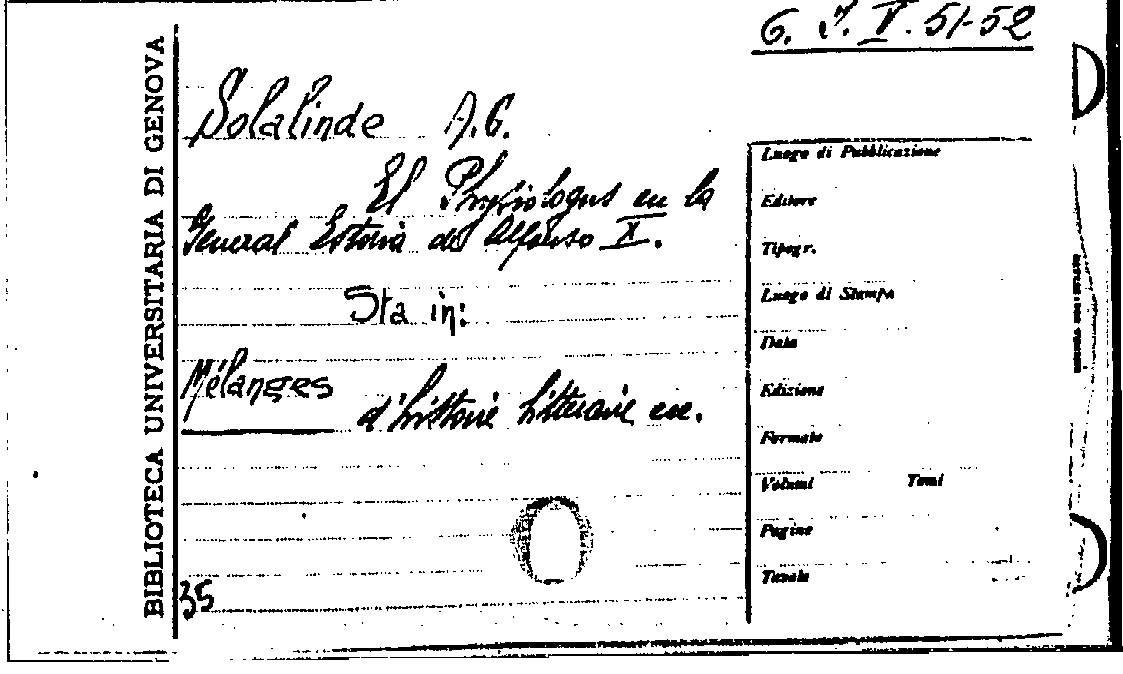 G. J. V. 51-52
BIBLIOTECA UNIVERSITARIA DI GENOVA
Solalinde A.G.
El Physiologus en la
General Estoria de Alfonso X.
Sta in:
Mélanges
d'histoire littéraire ecc.
35
Luogo di Pubblicazione
Editore
Tipogr.
Luogo di Stampa
Data
Edizione
Formato
Volumi Tomi
Pagine
Tavole